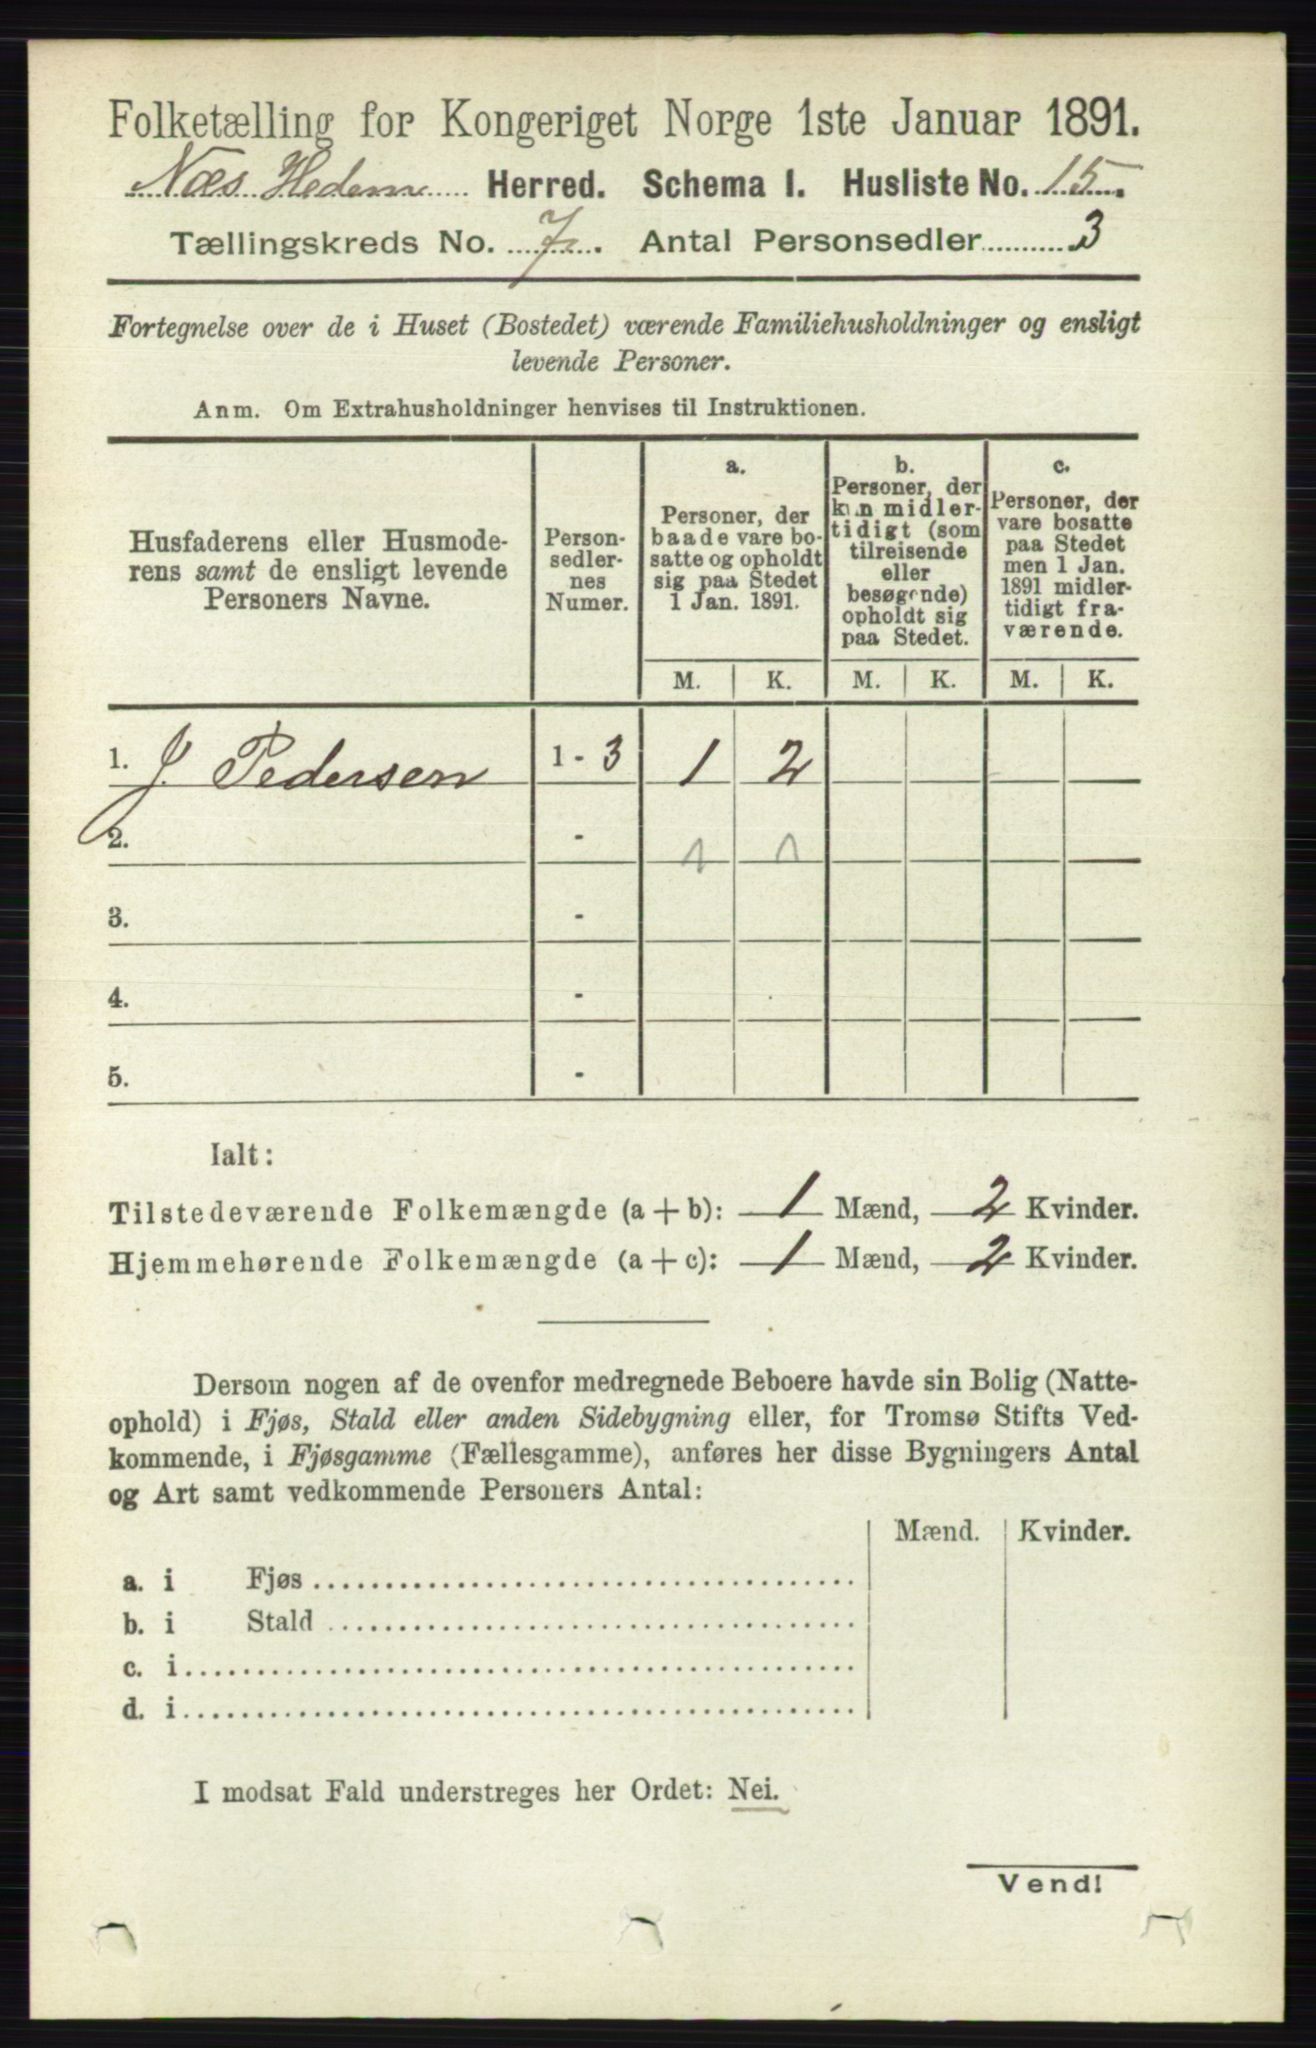 Folketælling for Kongeriget Norge 1ste Januar 1891.
Næs Hedem Herred. Schema I. Husliste No. 15.
Tællingskreds No. 7. Antal Personsedler 3
Fortegnelse over de i Huset (Bostedet) værende Familiehusholdninger og ensligt
levende Personer.
Anm. Om Extrahusholdninger henvises til Instruktionen.
Husfaderens eller Husmode-
rens samt de ensligt levende
Personers Navne.
Person-
sedler-
nes
Numer.
a.
Personer, der
baade vare bo-
satte og opholdt
sig paa Stedet
1 Jan. 1891.
b.
Personer, der
kun midler-
tidigt (som
tilreisende
eller
besøgende)
opholdt sig
paa Stedet.
c.
Personer, der
vare bosatte
paa Stedet
men 1 Jan.
1891 midler-
tidigt fra-
værende.
M. K. M. K. M. K.
1. J. Pedersen 1 - 3 1 2
2. -
3. -
4. -
5. -
Ialt:
Tilstedeværende Folkemængde (a + b): 1 Mænd, 2 Kvinder.
Hjemmehørende Folkemængde (a + c): 1 Mænd, 2 Kvinder.
Dersom nogen af de ovenfor medregnede Beboere havde sin Bolig (Natte-
ophold) i Fjøs, Stald eller anden Sidebygning eller, for Tromsø Stifts Ved-
kommende, i Fjøsgamme (Fællesgamme), anføres her disse Bygningers Antal
og Art samt vedkommende Personers Antal:
Mænd. Kvinder.
a. i Fjøs
b. i Stald
c. i
d. i
I modsat Fald understreges her Ordet: Nei.
Vend!